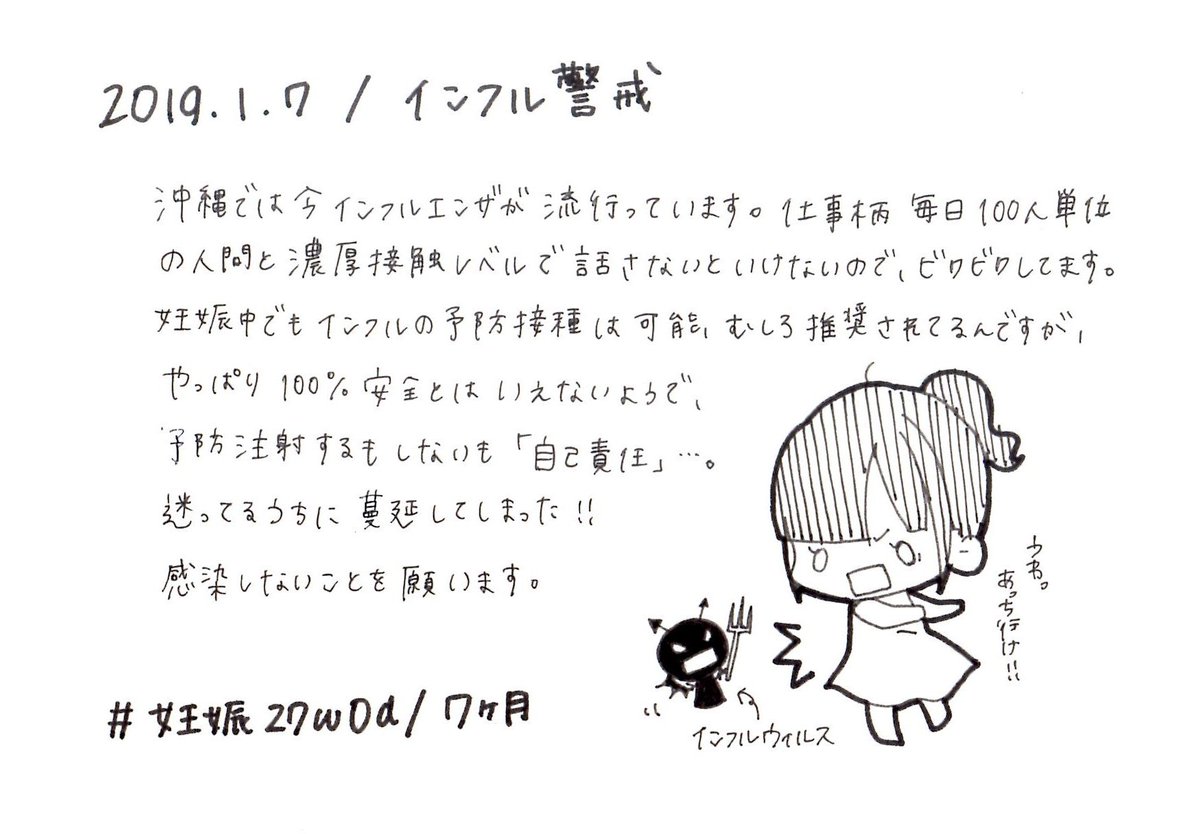 2019.1.7 / インフル警戒
沖縄では今インフルエンザが流行っています。仕事柄 毎日100人単位
の人間と濃厚接触レベルで話さないといけないので、ビクビクしてます。
妊娠中でもインフルの予防接種は可能、むしろ推奨されてるんですが、
やっぱり100%安全とはいえないようで、
予防注射するもしないも「自己責任」…。
迷ってるうちに蔓延してしまった!!
感染しないことを願います。
うわ。
あっち行け!!
インフルウィルス
#妊娠27w0d/7ヶ月